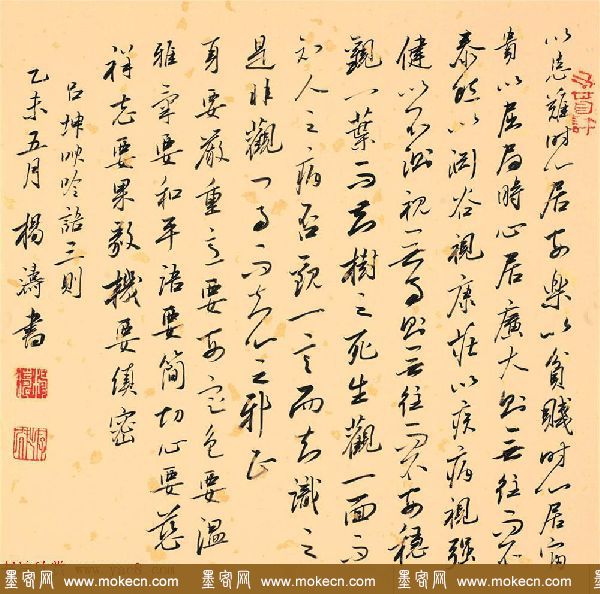 以患難時心居安樂以貧賤時心居富
貴以屈局時心居廣大則无往而不
泰然以淵谷視康莊以疾病視强
健以不測視无事則无往而不安穩
觀一葉而知樹之死生觀一面而
知人之病否觀一言而知識之
是非觀一事而知心之邪正
身要嚴重意要安定色要溫
雅氣要和平語要簡切心要慈
祥志要果毅機要縝密
呂坤呻吟語三則
乙未五月 楊濤書
墨客网 www.mokecn.com 墨客网 www.mokecn.com 墨客网 www.mokecn.com